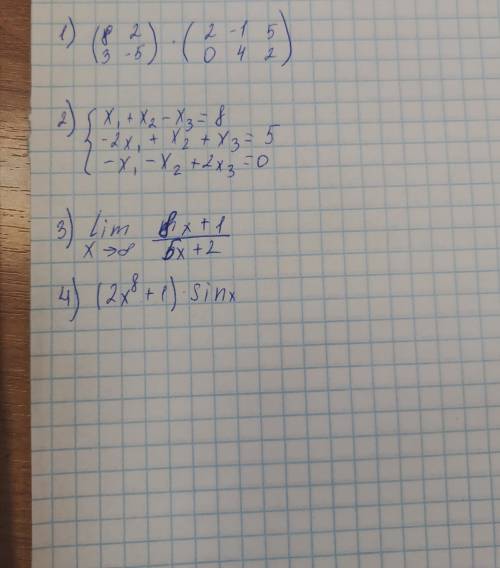 1) ( 8 2 ) · ( 2 -1 5 )
( 3 -5 ) ( 0 4 2 )
2) { x₁ + x₂ - x₃ = 8
-2x₁ + x₂ + x₃ = 5
-x₁ - x₂ + 2x₃ = 0
3) lim 8x + 1
x → ∞ 5x + 2
4) (2x⁸ + 1) · sinx